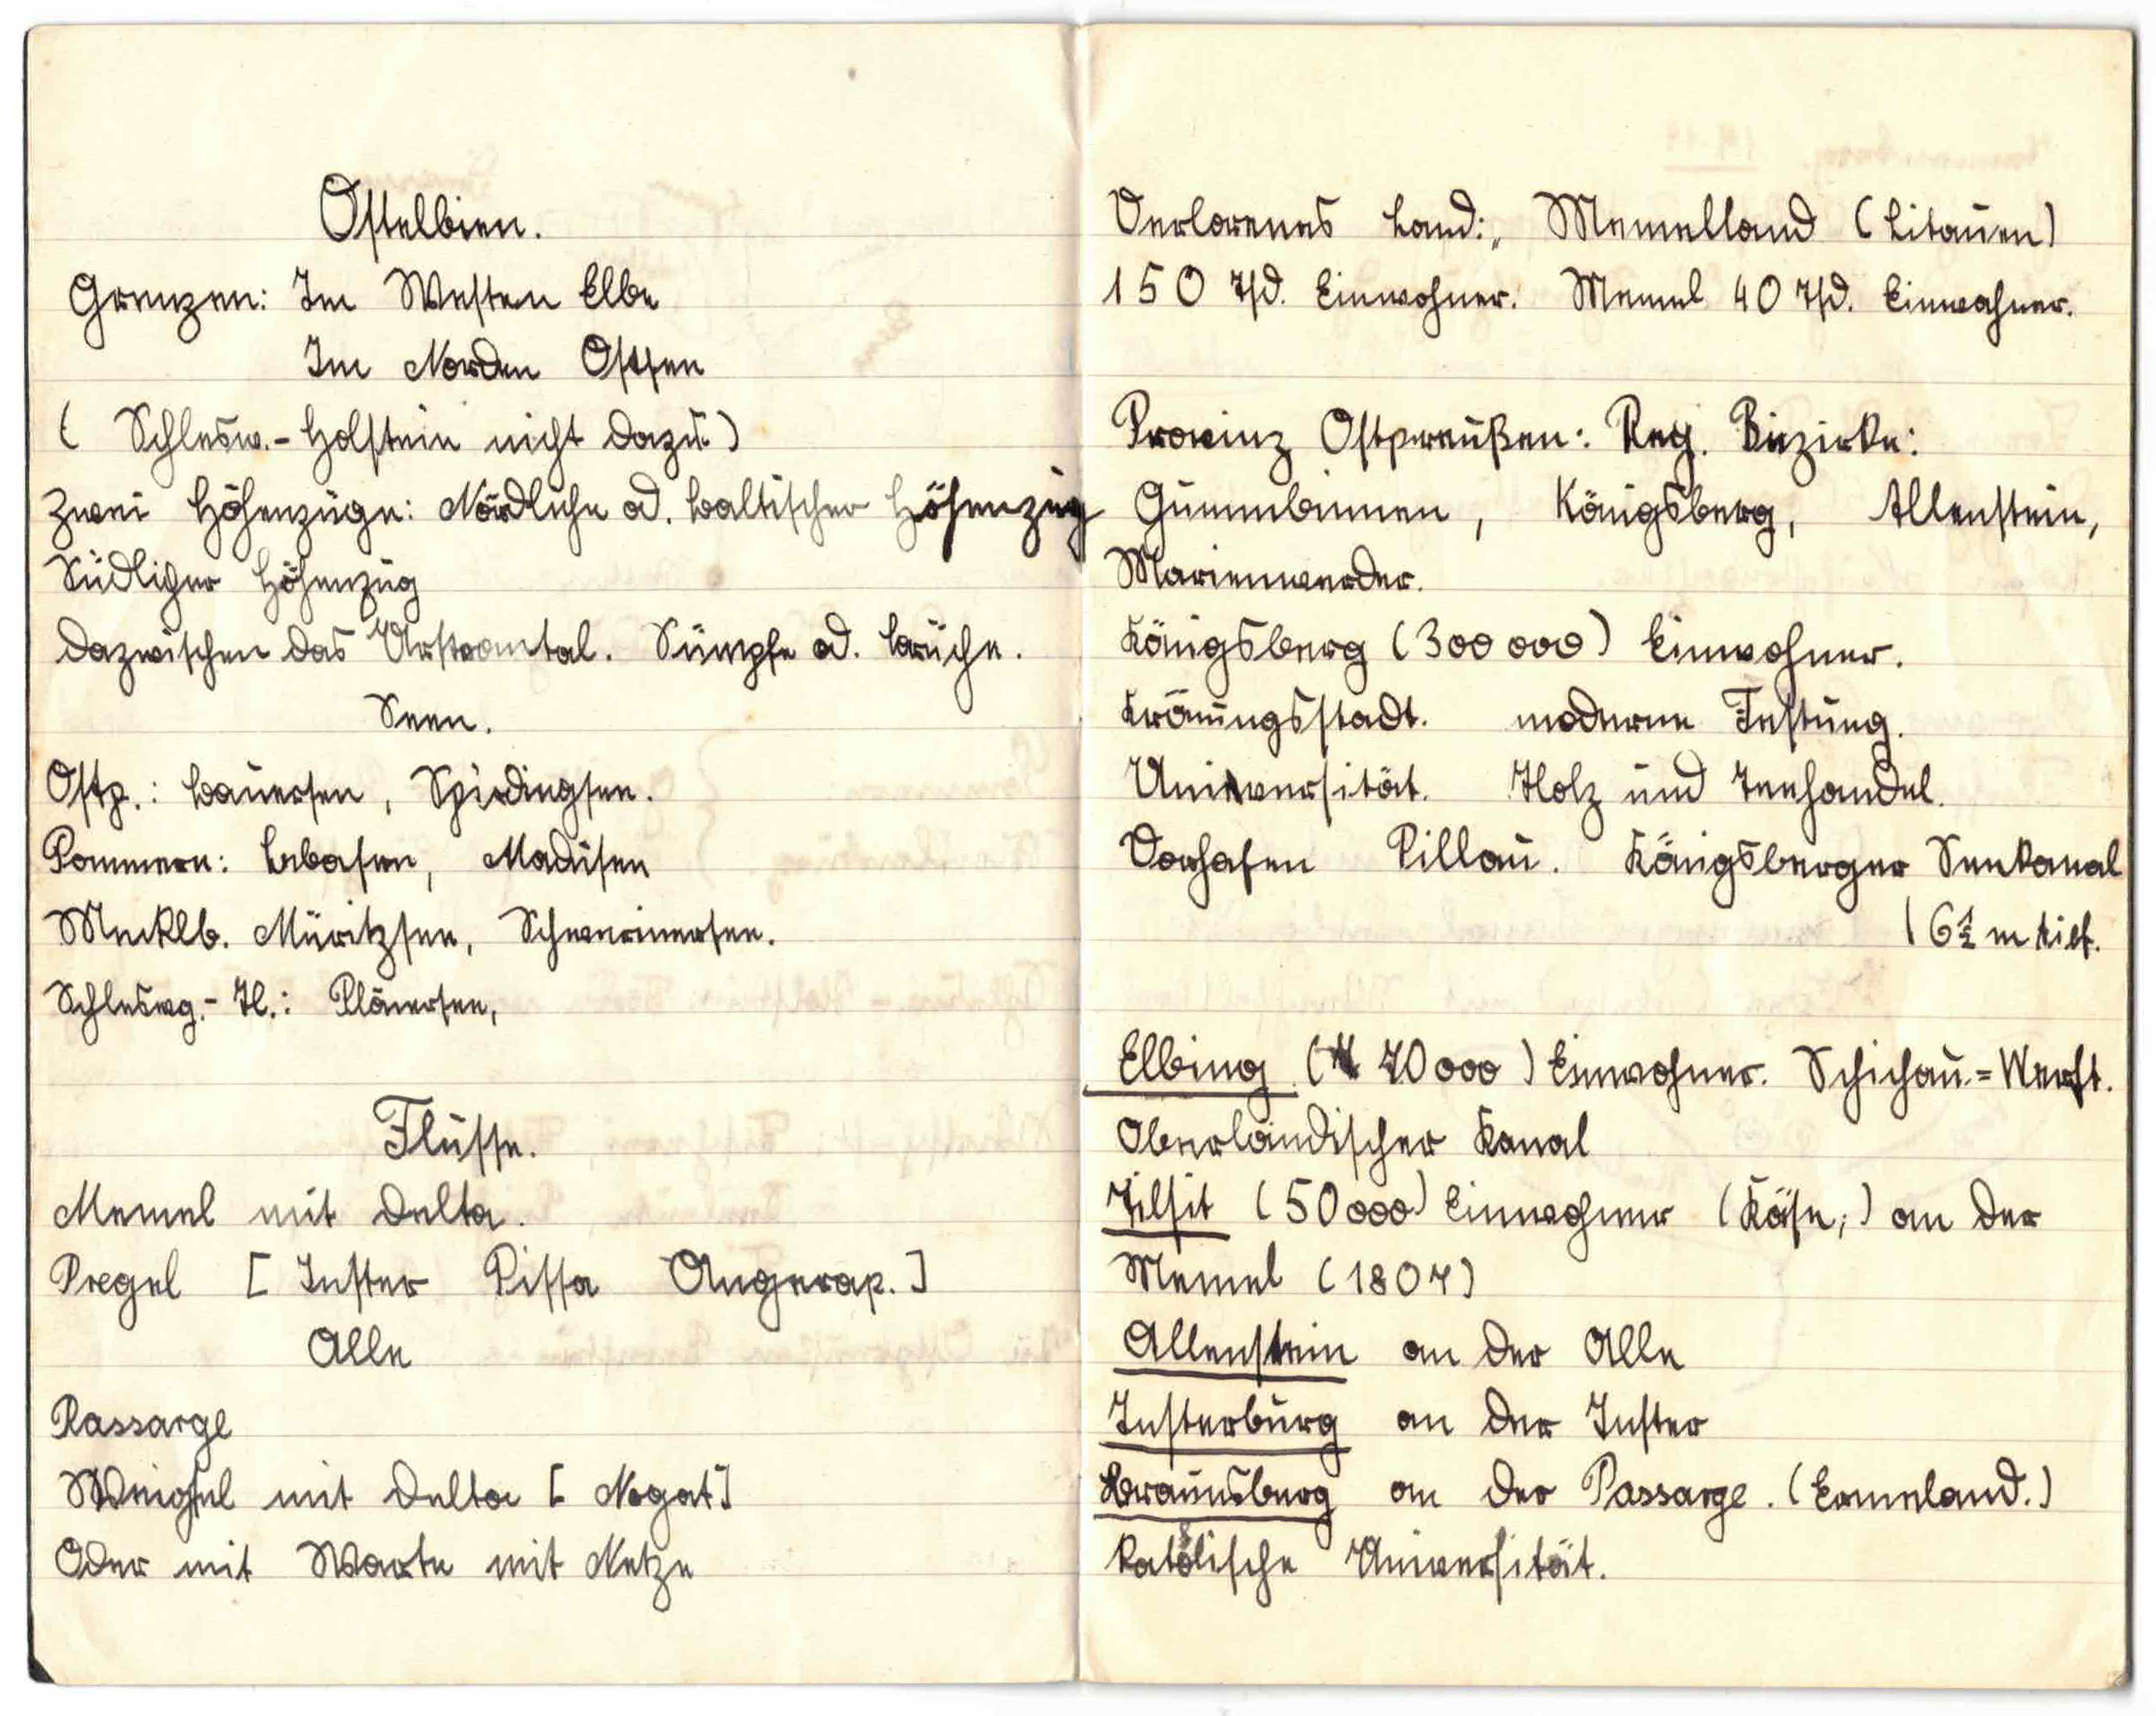 Ostelbien.
Grenzen: Im Westen Elbe
Im Norden Ostsee
( Schlesw.- Holstein nicht dazu)
Zwei Höhenzüge: Nördliche od. baltischer Höhenzug
Südlicher Höhenzug
dazwischen das Urstromtal. Sümpfe od. Brüche.
Seen.
Ostp.: Mauersee, Spirdingsee.
Pommern: Lebasee, Madüsee
Mecklb. Müritzsee, Schwerinersee.
Schleswg.- H.: Plönersee,
Flüsse.
Memel mit Delta.
Pregel [ Inster Pissa Angerap. ]
Alle
Passarge
Weichsel mit Delta [ Nogat ]
Oder mit Warte mit Netze
Verlorenes Land: Memelland ( Litauen)
150 Tsd. Einwohner. Memel 40 Tsd. Einwohner.
Provinz Ostpreußen: Reg. Bezirke:
Gummbinnen, Königsberg, Allenstein,
Marienwerder.
Königsberg (300 000) Einwohner.
Krönungsstadt. moderne Festung.
Universität. Holz und Teehandel.
Vorhafen Pillau. Königsberger Seekanal
| 6½ m tief.
Elbing ( 70 000 ) Einwohner. Schichau = Werft.
Oberländischer Kanal
Tilsit (50 000) Einwohner (Käse,) an der
Memel (1807)
Allenstein an der Alle
Insterburg an der Inster
Braunsberg an der Passarge. (Ermeland.)
katolische Universität.